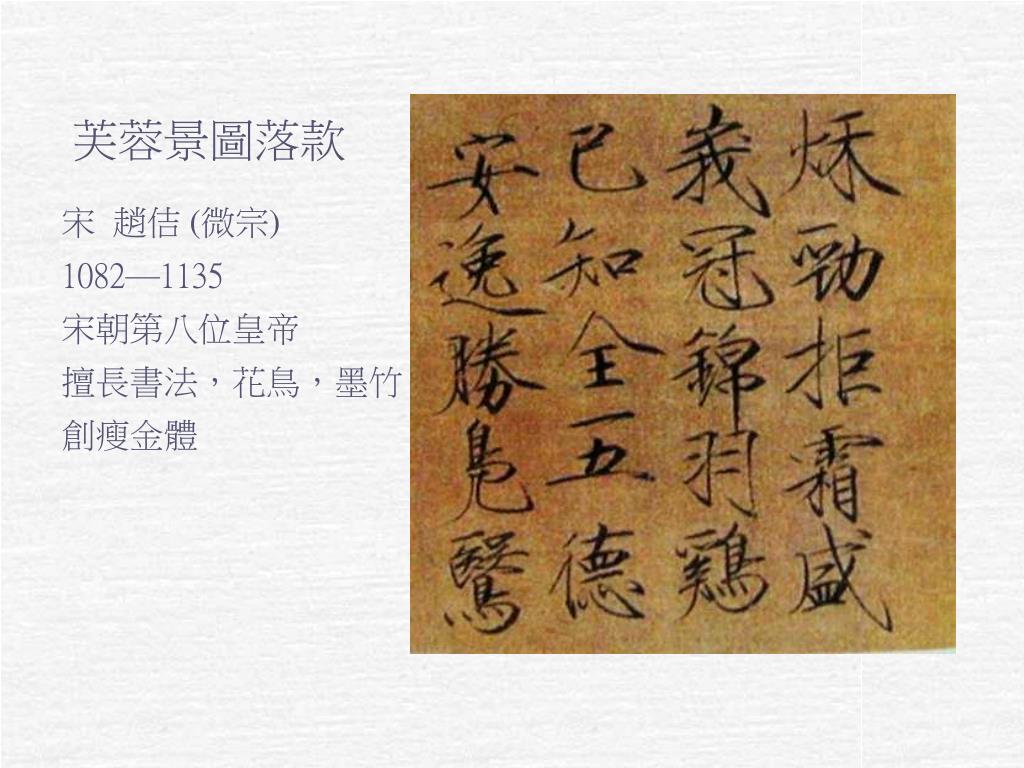 芙蓉景圖落款
宋 趙佶 (微宗)
1082—1135
宋朝第八位皇帝
擅長書法，花鳥，墨竹
創瘦金體
秋勁拒霜盛
峩冠錦羽鷄
已知全五德
安逸勝鳧鷖